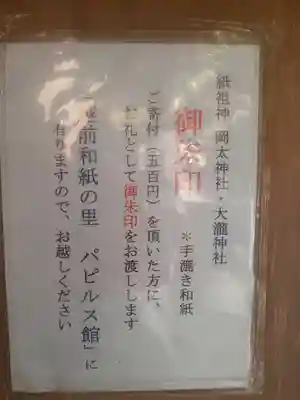 紙祖神 岡太神社・大瀧神社
御朱印
＊手漉き和紙
ご寄付（五百円）を頂いた方に、
お礼として御朱印をお渡しします
「越前和紙の里 パピルス館」に
有りますので、お越しください